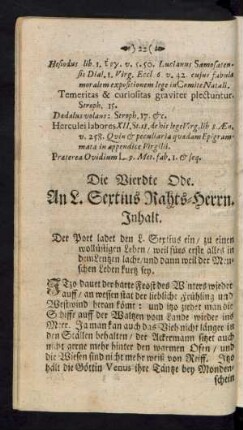 •)22(•
Hesiodus lib. 1. ἔργ. v. 5.50. Lucianus Samosaten-
sis Dial. 1. Virg. Eccl. 6 v. 42. cujus fabulæ
moralem expositionem lege in Comite Natali.
Temeritas & curiositas graviter plectuntur.
Stroph. 15.
Dædalus volans: Stroph. 17. &c.
Herculei labores XII. St. 18. de his lege Virg. lib 8. Æn.
v. 258. Quin & peculiaria quædam Epigram-
mata in appendice Virgilii.
Præterea Ovidium L. 9. Met. fab. 1. & seq.
Die Vierdte Ode.
An L. Sextius Rahts-Herrn.
Inhalt.
Der Poet ladet den L. Sextius ein / zu einen
wollüstigen Leben / weil fürs erste alles in
dem Lentzen lache / und dann weil der Men-
schen Leben kurtz sey.
Itzo dauet der harte Frost des Winters wieder
auff / an wessen stat der liebliche Frühling und
Westwind heran kömt: und itzo ziehet man die
Schiffe auff der Waltzen vom Lande wieder ins
Meer. Ja man kan auch das Vieh nicht länger in
den Ställen behalten / der Ackermann sitzet auch
nicht gerne mehr hinter den warmen Ofen / und
die Wiesen sind nicht mehr weiß von Reiff. Itzo
hält die Göttin Venus ihre Täntze bey Monden-
schein